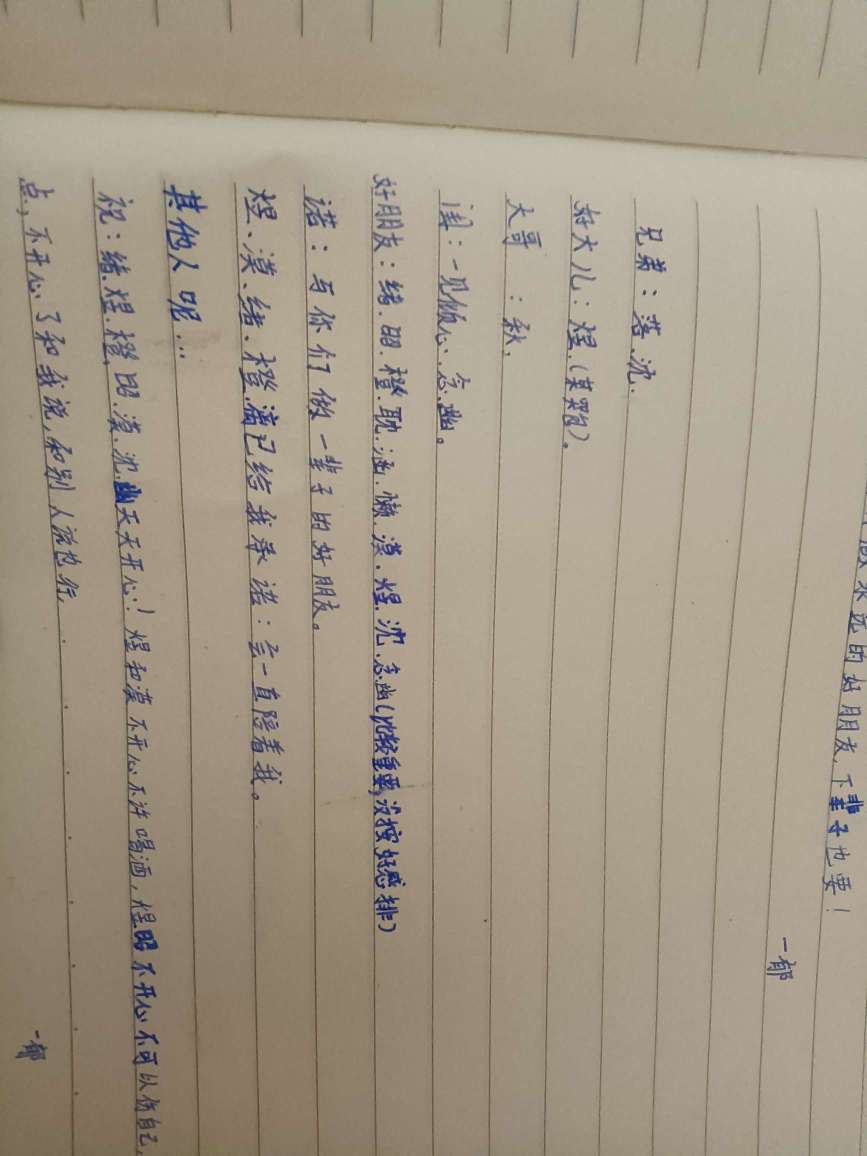 永远的好朋友，下辈子也要！
一郁
兄弟：落.沈.
好大儿：煜.(菜哭包)。
大哥：秋.
闺：一见倾心.念.幽。
好朋友：绪.昭.橙.耽.涵.懒.漠.煜.沈.念.幽(比较重要，没按好感排)
诺：与你们做一辈子的好朋友。
煜、漠、绪、橙、满已给我承诺：会一直陪着我。
其他人呢...
祝：绪.煜.橙.昭.漠.沈.幽天天开心！煜和漠不开心不许喝酒，煜昭不开心不可以伤自己，
点，不开心了和我说，和别人说也行.
一郁